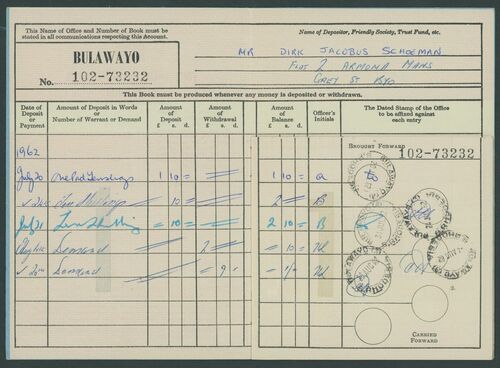 This Name of Office and Number of Book must be
stated in all communications respecting this Account.
BULAWAYO
No. 102-73232
Name of Depositor, Friendly Society, Trust Fund, etc.
MR DIRK JACOBUS SCHOEMAN
FLAT 2 ARMONA MANS
GREY ST BYO
This Book must be produced whenever any money is deposited or withdrawn.
Date of Deposit or Payment
Amount of Deposit in Words
or
Number of Warrant or Demand
Amount of Deposit
£ s. d.
Amount of Withdrawal
£ s. d.
Amount of Balance
£ s. d.
Officer's Initials
The Dated Stamp of the Office
to be affixed against
each entry
1962
BROUGHT FORWARD
102-73232
July 20 One Pd Ten shillings 1 10 = 1 10 =
Ten Shillings 2 = = B
July 21 Ten Shilling = 10 = 2 10 = B
Demand 2 = = = 10 =
Demand = 9 = = 1/=
CARRIED
FORWARD